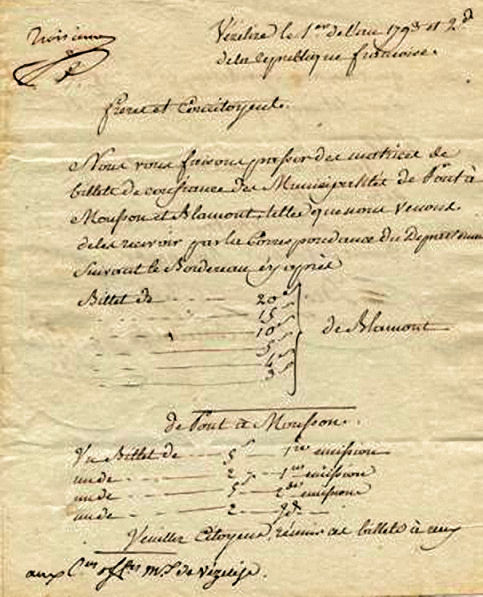 Vézelise le 1er de l'an 1793 et 2d
de la république françoise.
freres et Concitoyens.
Nous vous faisons passer des matrices de
billets de confiance des Municipalités de Pont à
Mousson et Blamont, telles que nous venons
de les recevoir par la Correspondance du Departement
Suivant le Bordereau cy après
Billet de - - - - 20s
15s
10s
5s
4s
3s
de Blamont
de Pont à Mousson.
Un Billet de - - - 5s - 1re emission
un de - - - 2 - - 1re emission
un de - - - 5s - 2de emission
un de - - - 2 - 2de
Veuillez Citoyens, réunir ces billets à ceux
aux Cns offers mx de Vézelise.